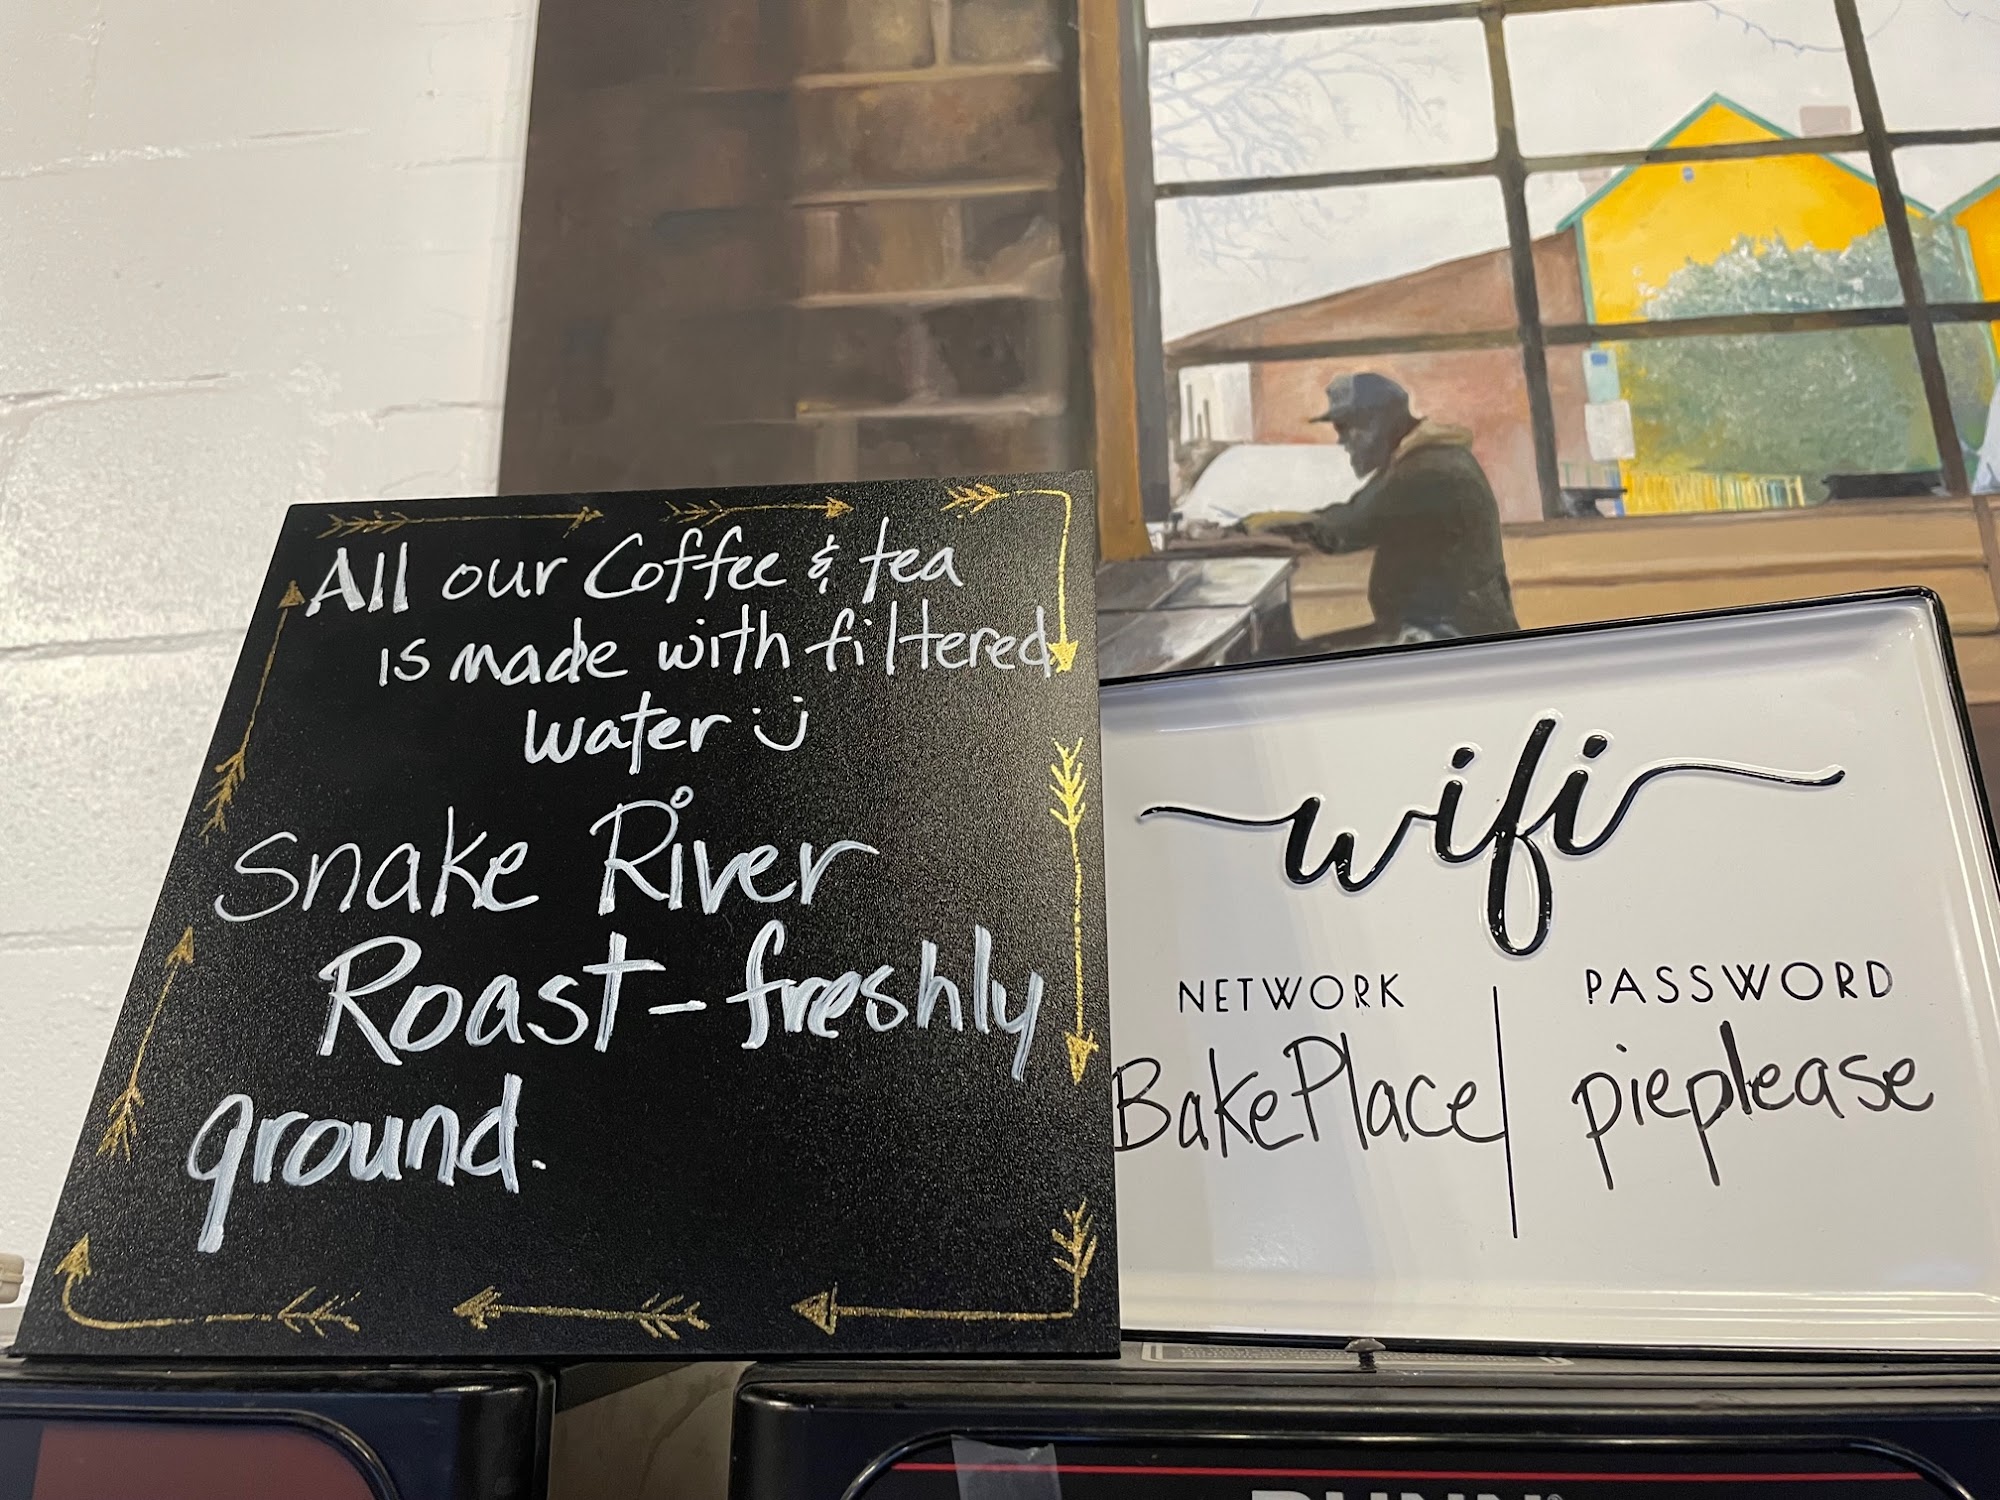 All our Coffee & tea
is made with filtered
water :)
Snake River
Roast - freshly
ground.
wifi
NETWORK
BakePlace
PASSWORD
pieplease
BUNN®